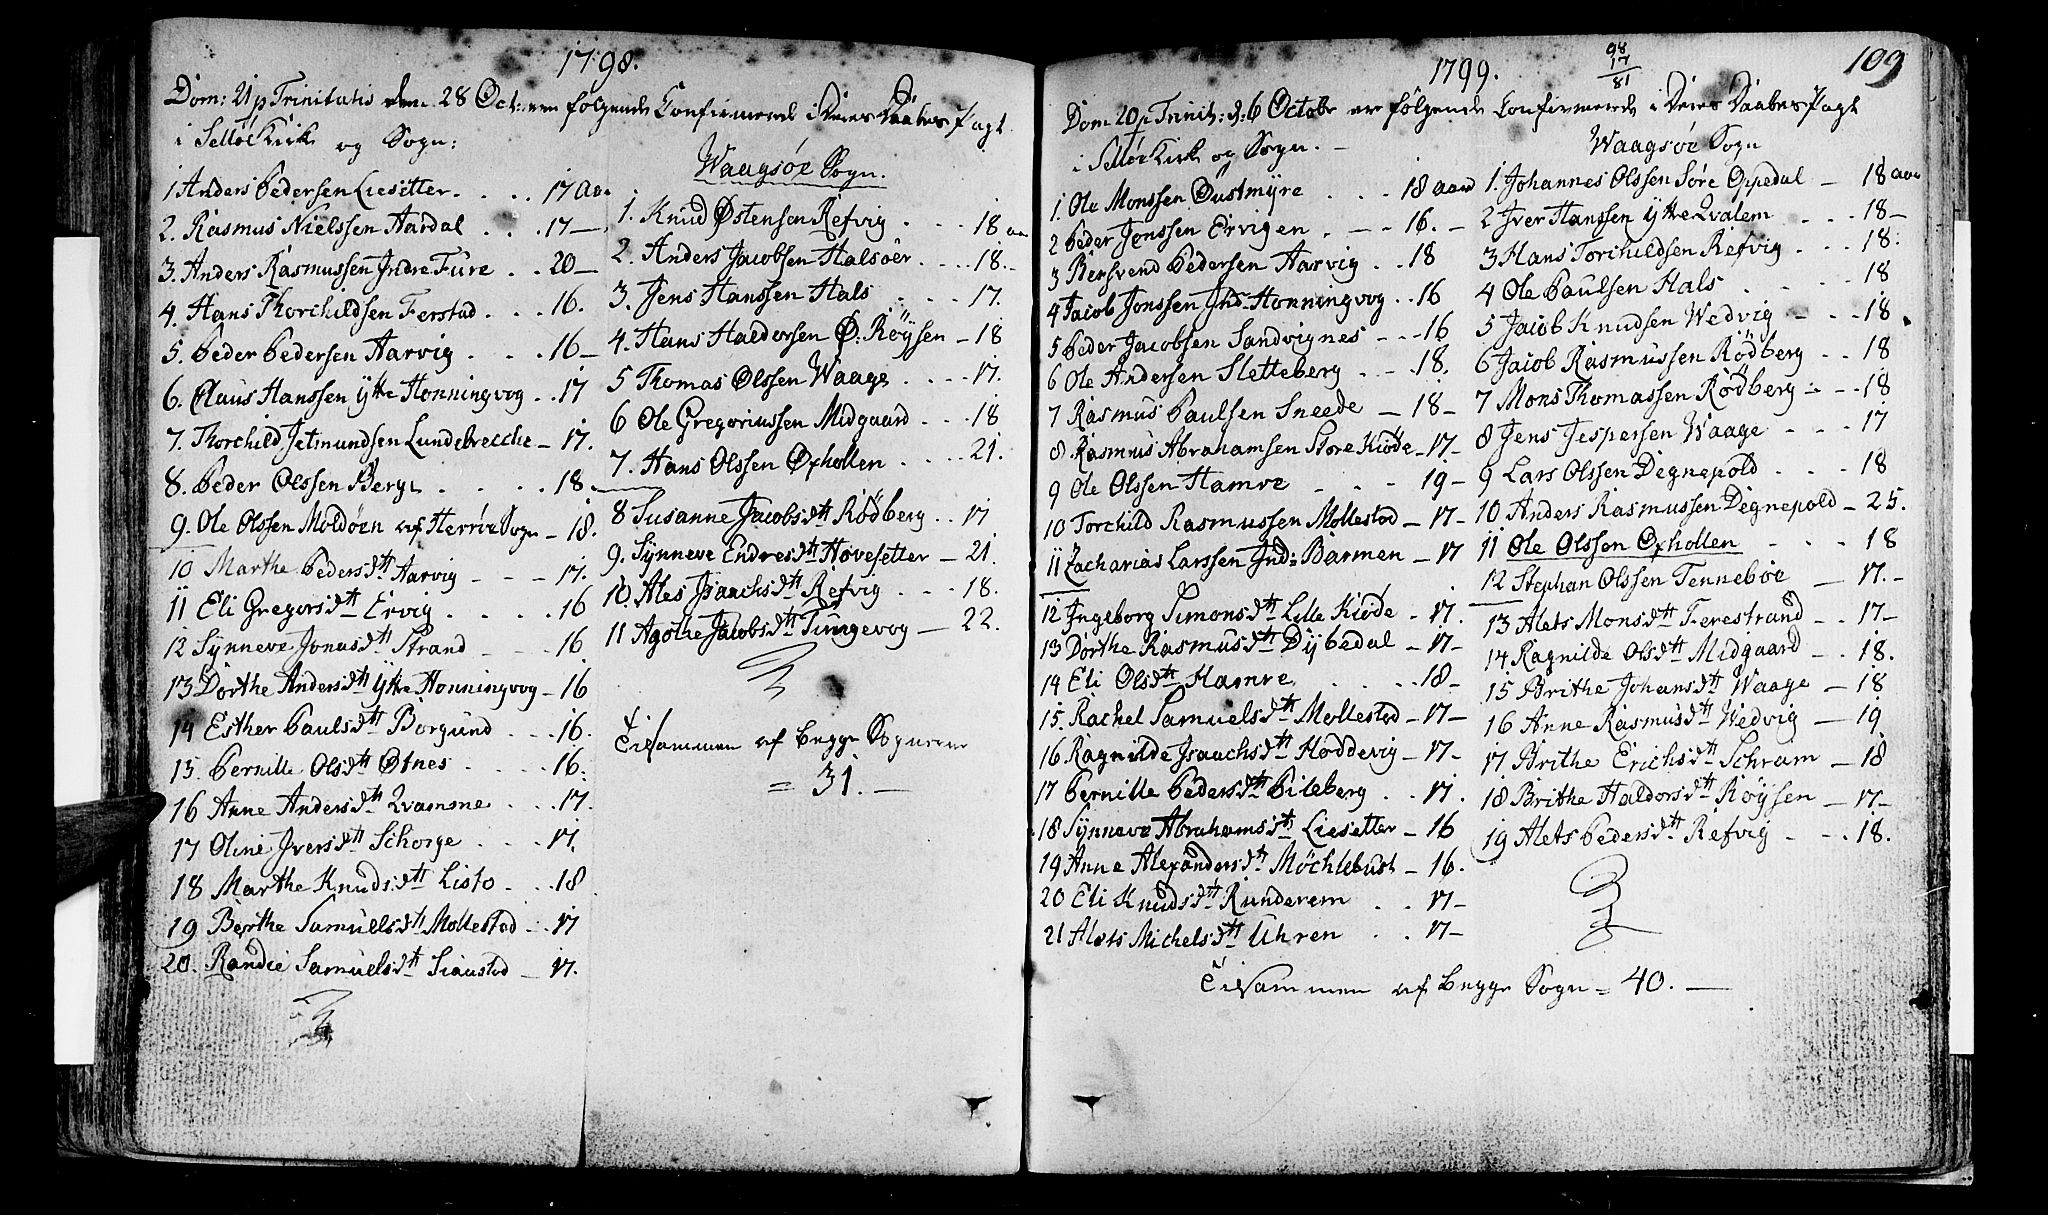 1798.
Dom: 21 p Trinitatis den 28 Oct: ere følgende Confirmerede i Deres Daabes Pagt
i Selløe Kirk og Sogn:
1 Anders Pedersen Liesetter. . . . 17 Aar
2. Rasmus Nielssen Aardal . . . 17 —
3. Anders Rasmussen Indre Fure . . 20 —
4. Hans Thorchildsen Ferstad . . . 16.
5. Peder Pedersen Aarvig . . . . 16 —
6. Claus Hanssen Ÿttre Honningvog . . 17
7. Thorchild Jetmundsen Lundebrecche — 17.
8. Peder Olssen Berge . . . . 18.
9. Ole Olssen Moldöen af Herröe Sogn — 18.
10 Marthe Peders dtt Aarvig - - - 17.
11 Eli Gregors dtt Ervig . . . . 16
12 Synneve Jonas dtt Strand - - - 16
13 Dorthe Anders dtt Ÿttre Honningvog — 16
14 Esther Pauls dtt Borgund . . . 16.
15. Pernille Ols dtt Otnes . . . . 16.
16 Anne Anders dtt Qvamme . . . 17.
17 Oline Ivers dtt Schorge . . . 17.
18 Marthe Knuds dtt Listo . . . 18
19 Berthe Samuels dtt Mollestad . . 17
20. Randie Samuels dtt Siaustad — 17.
Waagsöe Sogn.
1. Knud Østensen Refvig . . . 18 aar
2. Anders Jacobsen Halsöer . . . 18.
3. Jens Hanssen Hals . . . 17.
4. Hans Haldorsen Ø: Röysen — 18
5 Thomas Olssen Waage . . . . 17.
6 Ole Gregoriussen Midgaard . . . 18
7. Hans Olssen Oxhollen . . . . 21.
8 Susanne Jacobs dtt Rödberg . . 17
9. Synneve Endres dtt Hovesetter — 21.
10. Ales Isaachs dtt Refvig . . . 18.
11 Agothe Jacobs dtt Tungevog — 22.
Tilsammen af begge Sognerne
= 31. —
1799.
98
17
81
109
Dom 20 p Trinit: d: 6 Octobr ere følgende Confirmerede i Deres Daabes Pagt
i Selløe Kirk og Sogn. —
1. Ole Monssen Öustmyre . . . 18 aar
2 Peder Jenssen Ervigen . — - 16. —
3 Bersvend Pedersen Aarvig . . 18
4 Jacob Jonssen Ind: Honningvog . . 16
5 Peder Jacobsen Sandvignes - - - 16
6 Ole Andersen Sletteberg - - - 18.
7 Rasmus Paulsen Sneede — 18 —
8 Rasmus Abrahamsen Store Kiöde — 17 —
9 Ole Olssen Hamre - - - 19 —
10 Torchild Rasmussen Mollestad — 17 —
11 Zacharias Larssen Ind: Barmen — 17
12 Ingeborg Simons dtt Lille Kiöde — 17.
13 Dorthe Rasmus dtt Dybedal — 17 —
14 Eli Ols dtt Hamre . . . . 18 —
15. Rachel Samuels dtt Mollestad — 17 —
16 Ragnilde Isaachs dtt Hoddevig — 17 —
17 Pernille Peders dtt Pileberg . . 17.
18 Synneve Abrahams dtt Liesetter — 16
19 Anne Alexanders dtt Möchlebust — 16.
20 Eli Knuds dtt Runderem . . 17 —
21 Alets Michels dtt Uhren . . 17 —
Waagsöe Sogn
1. Johannes Olssen Söre Oppedal — 18 aar
2 Iver Hanssen Ÿttre Qvalem - - - 18 —
3 Hans Torchildsen Refvig - - - 18.
4 Ole Paulsen Hals . . . . 18
5 Jacob Knudsen Wedvig - - - 18
6 Jacob Rasmussen Rödberg - - 18
7 Mons Thomassen Rödberg - - - 18
8 Jens Jespersen Waage - - - 17
9 Lars Olssen Degnepold . . . 18
10 Anders Rasmussen Degnepold — 25.
11 Ole Olssen Oxhollen - - - 18
12 Stephan Olssen Tenneböe — 17. —
13 Alets Mons dtt Ferestrand - - 17 —
14 Ragnilde Ols dtt Midgaard — . 18.
15 Brithe Johans dtt Waage — 18
16 Anne Rasmus dtt Wedvig — 19
17 Brithe Erichs dtt Schram — 18
18 Brithe Haldors dtt Röysen — 17 —
19 Alets Peders dtt Refvig - - - 18.
Tilsammen af begge Sogn = 40. —